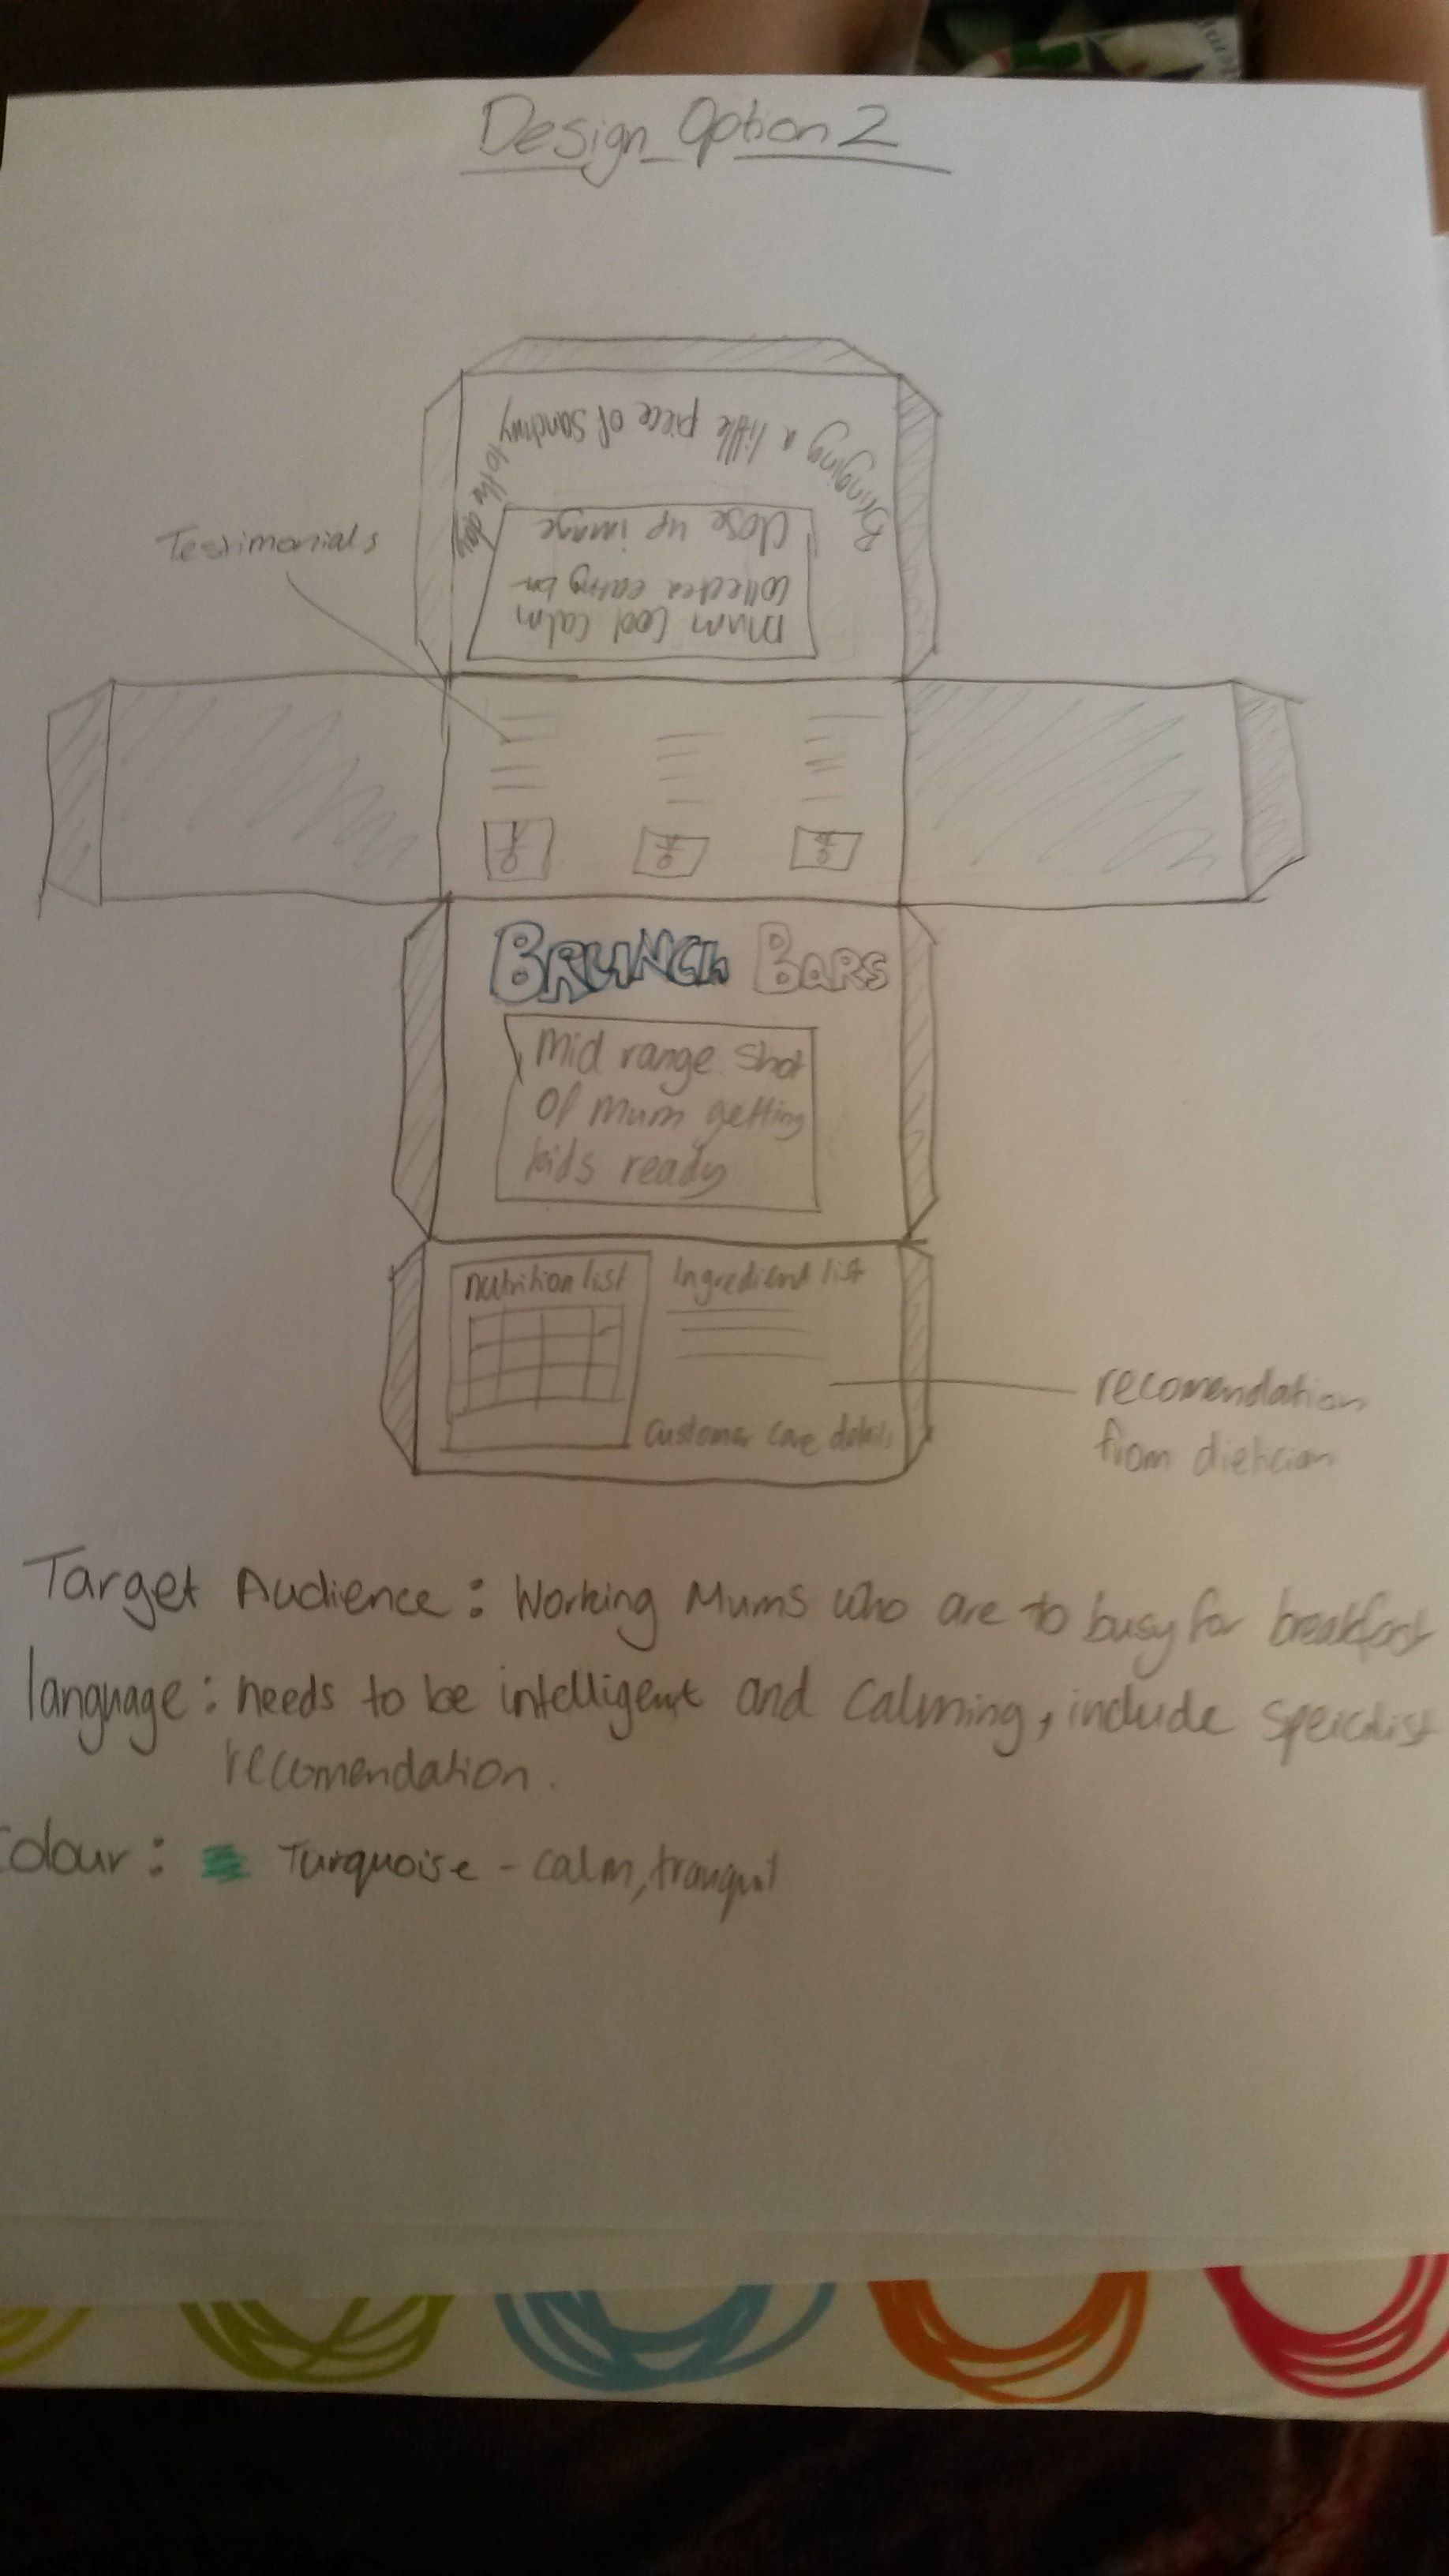 Design Option 2
Bringing a little piece of Sanctury to the day
Close up image
Mum Cool calm
collected eating bar
Testimonials
BRUNCH BARS
Mid range shot
of mum getting
kids ready
Nutrition list
Ingredient list
Customer care details
recomendation
from dietician
Target Audience: Working Mums who are to busy for breakfast
language: needs to be intelligent and calming, include speicalist
recomendation.
Colour: Turquoise - calm, tranquil